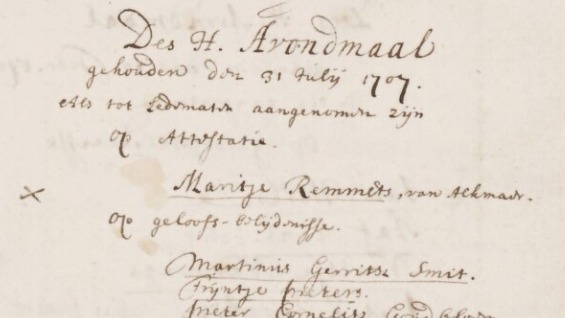 Des H. Avondmaal
gehouden den 31 Julij 1707.
Als tot Ledematen aangenomen zijn
op Attestatie.
x Maritje Remmets, van Alkmaar.
Op geloofs-belijdenisse.
Martinus Gerritsz Smit.
Trijntje pieters.
pieter Cornelisz